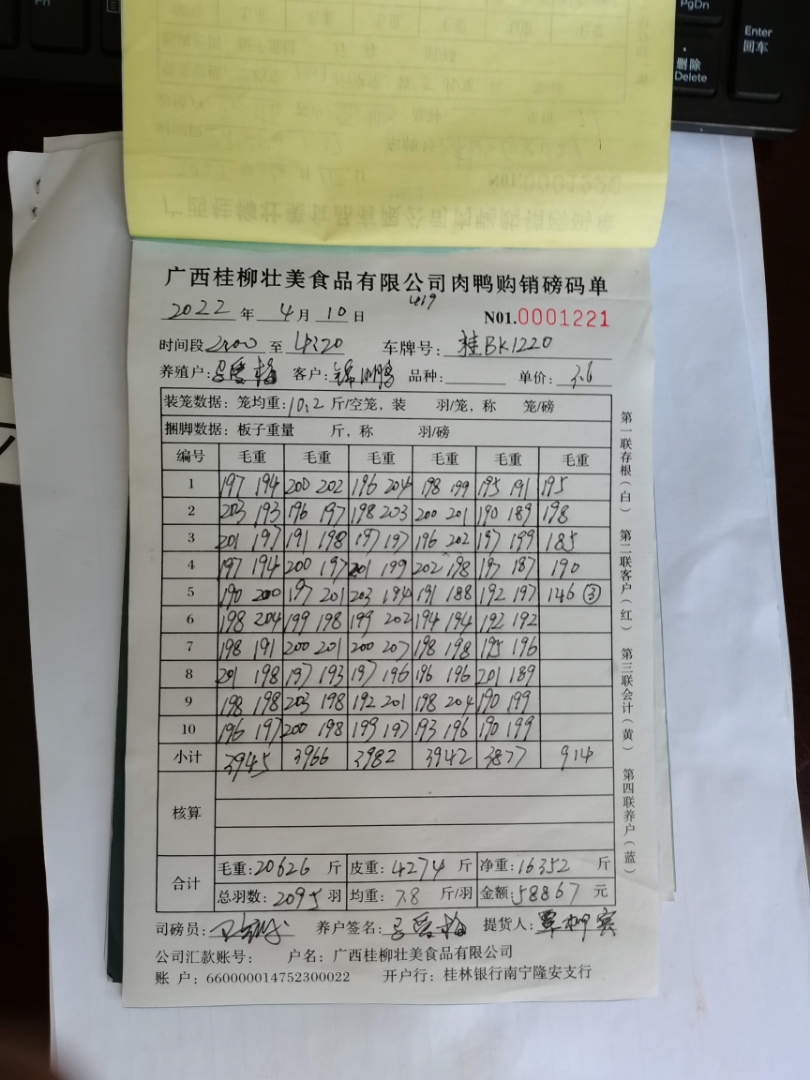 PgDn
Enter
回车
删除
Delete
广西桂柳壮美食品有限公司肉鸭购销磅码单
2022年 4月 10日 419 N01.0001221
时间段 2300 至 4320 车牌号: 桂BK1220
养殖户: 客户: 锦润鹏 品种: 单价: 3.6
装笼数据: 笼均重: 10.2 斤/空笼, 装 羽/笼, 称 笼/磅
捆脚数据: 板子重量 斤, 称 羽/磅
编号 毛重 毛重 毛重 毛重 毛重 毛重
1 197 194 200 202 196 204 198 199 195 191 195
2 203 193 196 197 198 203 200 201 190 189 198
3 201 197 191 198 197 197 196 202 197 199 185
4 197 194 200 197 201 199 202 198 197 187 190
5 190 200 197 201 203 194 191 188 192 197 146 ③
6 198 204 199 198 199 202 194 194 192 192
7 198 191 200 201 200 207 198 198 195 196
8 201 198 197 193 197 196 196 196 201 189
9 198 198 203 198 192 201 198 204 190 199
10 196 197 200 198 199 197 193 196 190 199
小计 3945 3966 3982 3942 3877 914
核算
合计 毛重: 20626 斤 皮重: 4274 斤 净重: 16352 斤
总羽数: 2095 羽 均重: 7.8 斤/羽 金额: 58867 元
司磅员: 养户签名: 提货人: 覃柳宾
公司汇款账号: 户名: 广西桂柳壮美食品有限公司
账 户: 660000014752300022 开户行: 桂林银行南宁隆安支行
第一联存根(白) 第二联客户(红) 第三联会计(黄) 第四联养户(蓝)